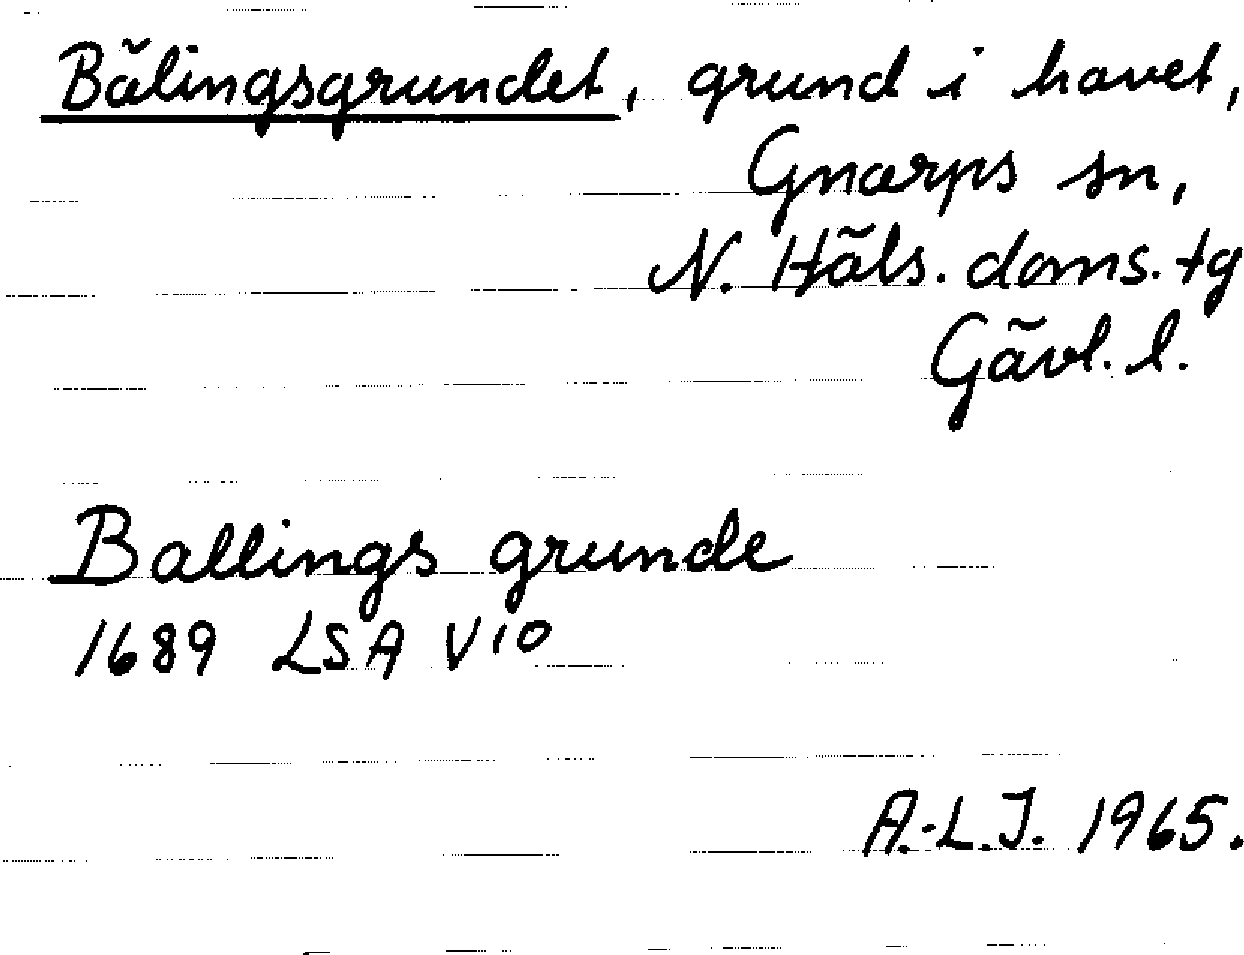 Bälingsgrundet, grund i havet,
Gnarps sn,
N. Häls. doms. tg
Gävl. l.
Ballings grunde
1689 LSA V10
A.-L.J. 1965.